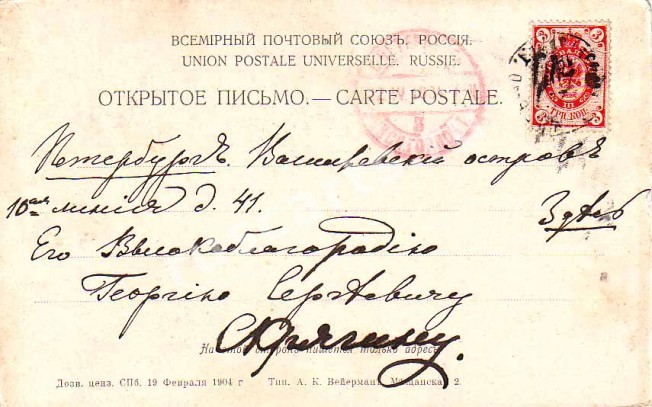 ВСЕМІРНЫЙ ПОЧТОВЫЙ СОЮЗЪ. РОССІЯ.
UNION POSTALE UNIVERSELLE. RUSSIE.
ОТКРЫТОЕ ПИСЬМО.— CARTE POSTALE.
3 3
3 3
Петербургъ. Васильевскій островъ
10ая линія д. 41.
Здѣсь
Его Высокоблагородію
Георгію Сергѣевичу
Скрягину.
На этой сторонѣ пишется только адресъ
Дозв. ценз. СПб. 19 Февраля 1904 г Тип. А. К. Вейерман, Мѣщанска 2.